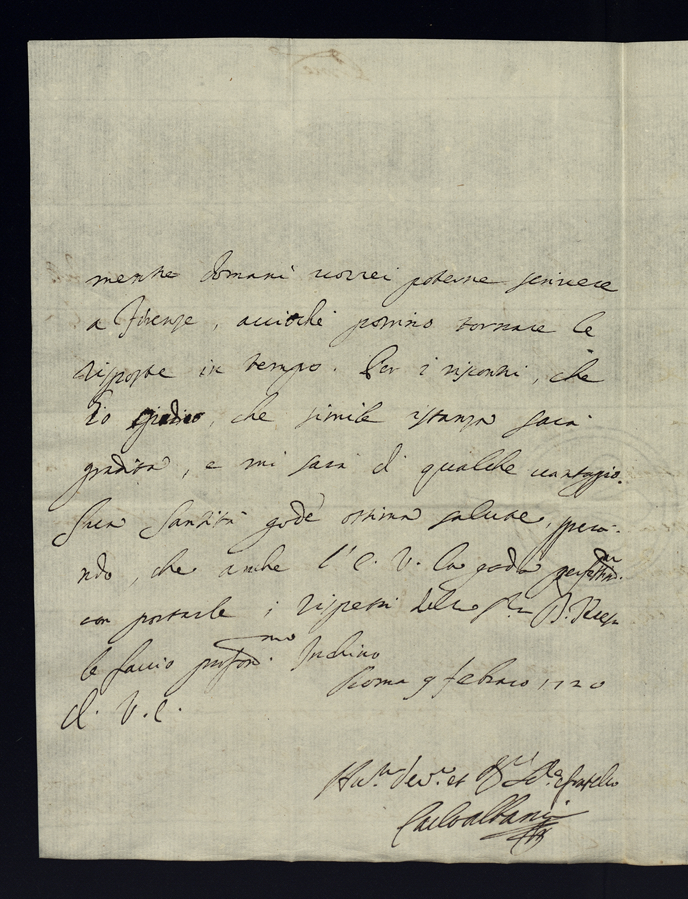 mentre domani vorrei poterne scrivere
a Firenze, acciochè possino tornare le
risposte in tempo. Per i riscontri, che
Io giudico, che simile istanza sarà
gradita, e mi sarà di qualche vantaggio.
Sua Santità gode ottima salute, spera-
ndo, che anche l'E. V. la goda
con portarle i rispetti della Sig.ra D.
le faccio profond.mo Inchino
Roma 9 febraro 1720
D. V. E.
Hu.mo Dev.mo et fratello
Carlo Albani